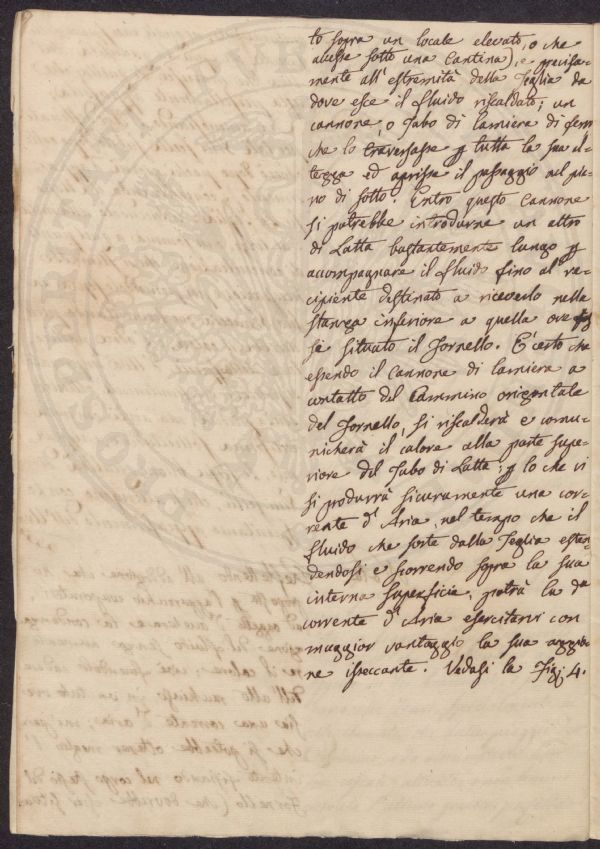 to sopra un locale elevato, o che
avesse sotto una Cantina), e precisa-
mente all' estremità della Teglia da
dove esce il fluido riscaldato; un
cannone, o Tubo di lamiera di ferro
che lo traversasse p tutta la sua al-
tezza ed aprisse il passaggio nel pia-
no di sotto. Entro questo Cannone
si potrebbe introdurne un altro
di Latta bastantemente lungo p
accompagnare il fluido fino al re-
cipiente destinato a riceverlo nella
stanza inferiore a quella ove
se situato il Fornello. È certo che
essendo il Cannone di lamiera a
contatto del Cammino orizontale
del Fornello, si riscalderà e comu-
nicherà il calore alla parte supe-
riore del Tubo di Latta; p lo che vi
si produrrà sicuramente una cor-
rente d' Aria, nel tempo che il
fluido che sorte dalla Teglia esten-
dendosi e scorrendo sopra la sua
interna superficie, potrà la da
corrente d' Aria esercitarvi con
maggior vantaggio la sua azzio-
ne isseccante. Vedasi la Fig: 4.